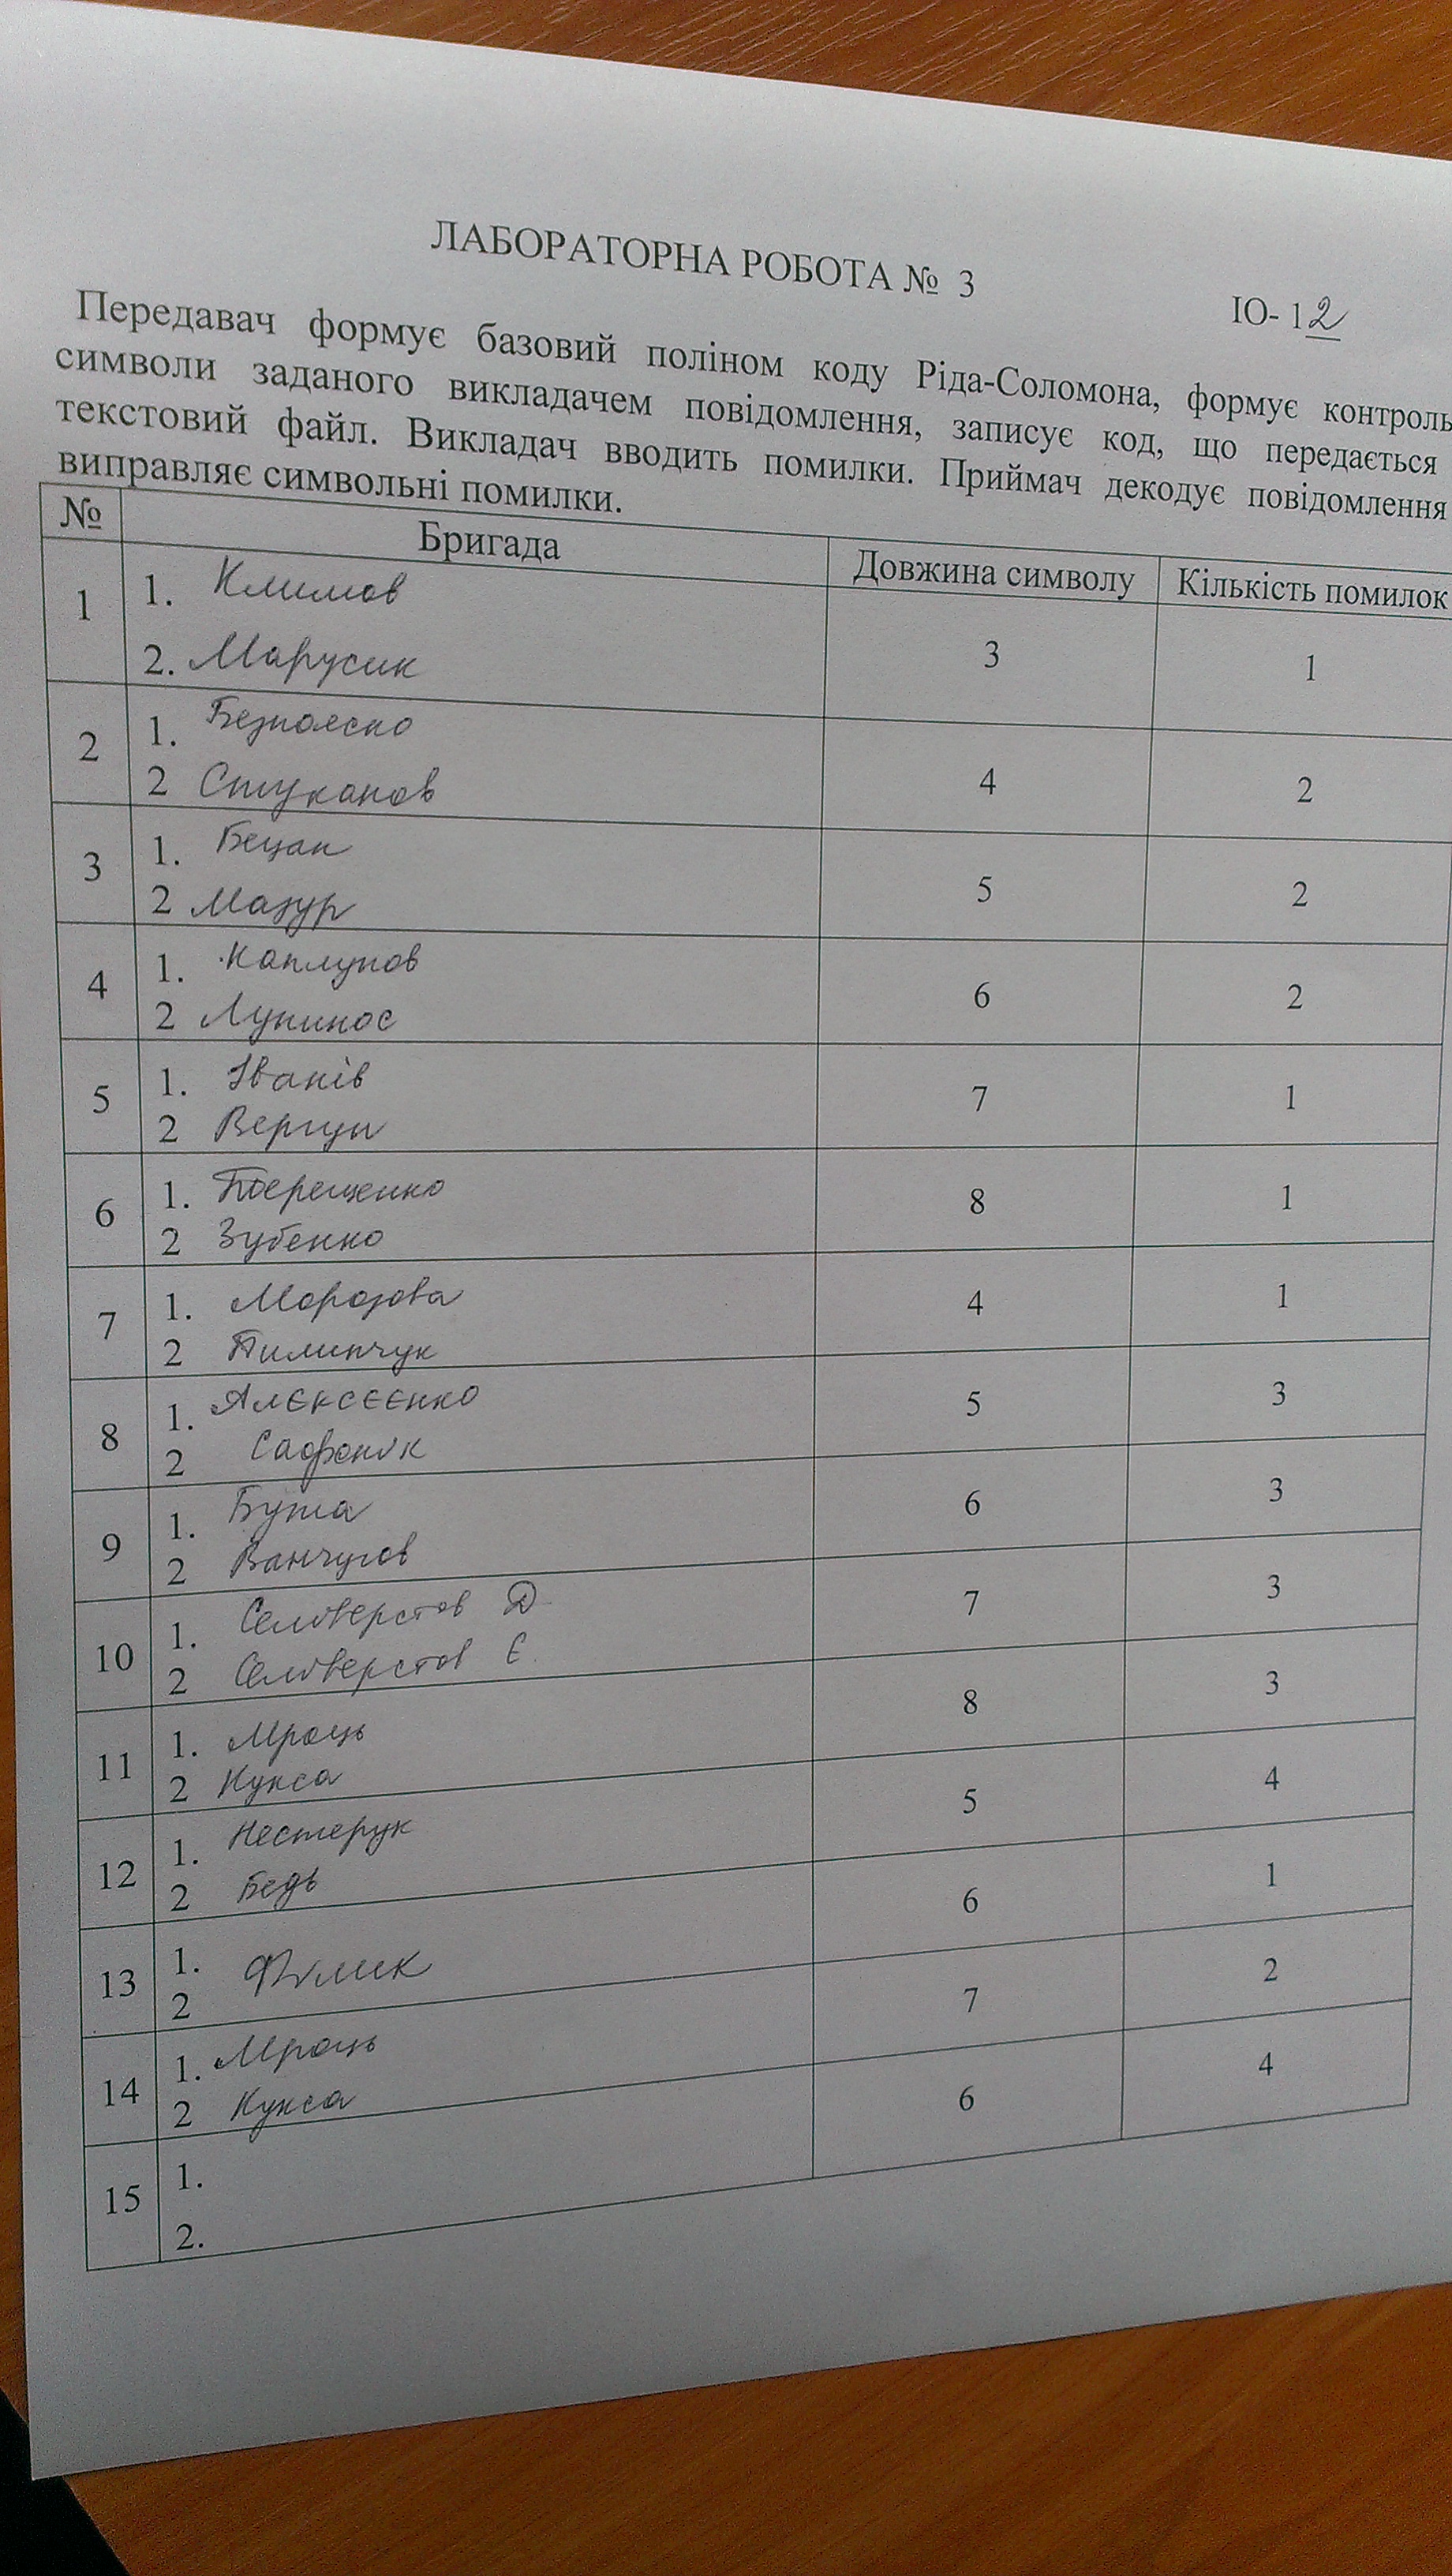 ЛАБОРАТОРНА РОБОТА № 3
ІО- 12
Передавач формує базовий поліном коду Ріда-Соломона, формує контроль
символи заданого викладачем повідомлення, записує код, що передається
текстовий файл. Викладач вводить помилки. Приймач декодує повідомлення
виправляє символьні помилки.
№ Бригада Довжина символу Кількість помилок
1 1. Климов
2. Марусик 3 1
2 1. Безполєско
2 Стуканов 4 2
3 1. Бецан
2 Мазур 5 2
4 1. Каплунов
2 Лупинос 6 2
5 1. Іванів
2 Вергун 7 1
6 1. Терещенко
2 Зубенко 8 1
7 1. Морозова
2 Пилипчук 4 1
8 1. Алєксєєнко
2 Сафонік 5 3
9 1. Бута
2 Ванчугов 6 3
10 1. Селіверстов Д
2 Селіверстов Є. 7 3
11 1. Мроць
2 Кукса 8 3
12 1. Нестерук
2 Бедь 5 4
13 1. Філик
2 6 1
14 1. Мроць
2 Кукса 7 2
15 1.
2. 6 4